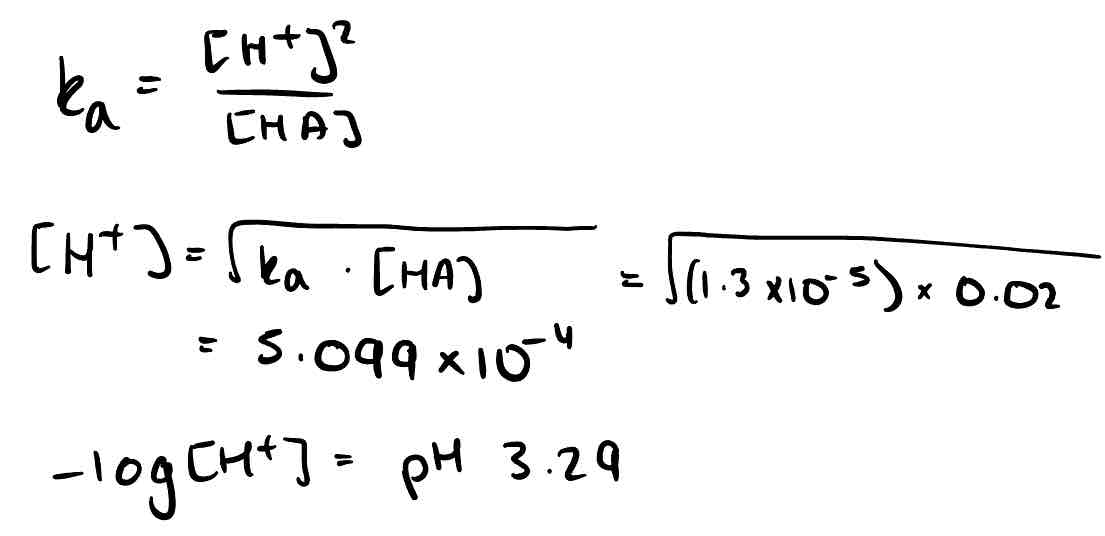 ka = [H⁺]² / [HA]
[H⁺] = √(ka · [HA]) = √((1.3 ×10⁻⁵) × 0.02)
= 5.099 ×10⁻⁴
-log[H⁺] = pH 3.29